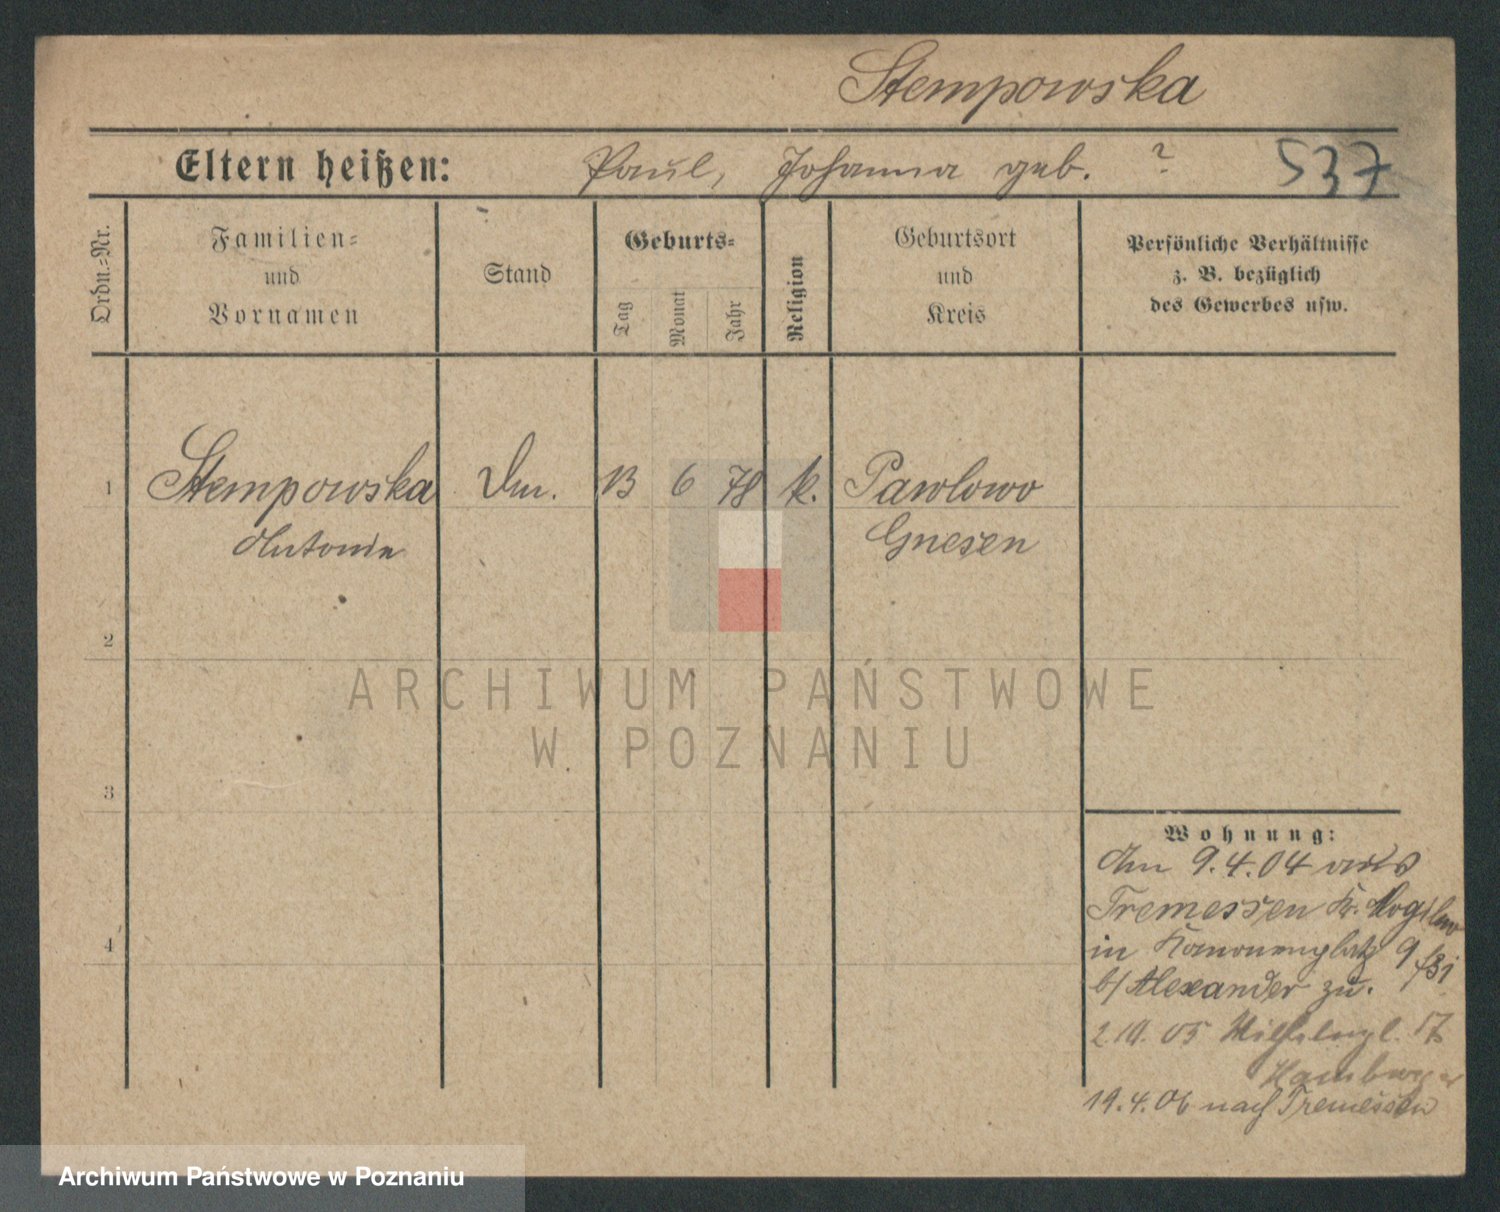 Stempowska
Eltern heißen: Paul, Johanna geb. ? 537
Ordn.-Nr.
Familien-
und
Vornamen
Stand
Geburts-
Tag
Monat
Jahr
Religion
Geburtsort
und
Kreis
Persönliche Verhältnisse
z. B. bezüglich
des Gewerbes usw.
1 Stempowska 13 6 78 k. Pawlowo
Antonie Gnesen
2
3
4
ARCHIWUM PAŃSTWOWE
W POZNANIU
Wohnung:
Am 9.4.04 aus
Tremessen Kr. Mogilno
in Kanonenplatz 9
b/ Alexander zu.
05 Wilhelmpl. 17
Hamburger
19.4.06 nach Tremessen
Archiwum Państwowe w Poznaniu